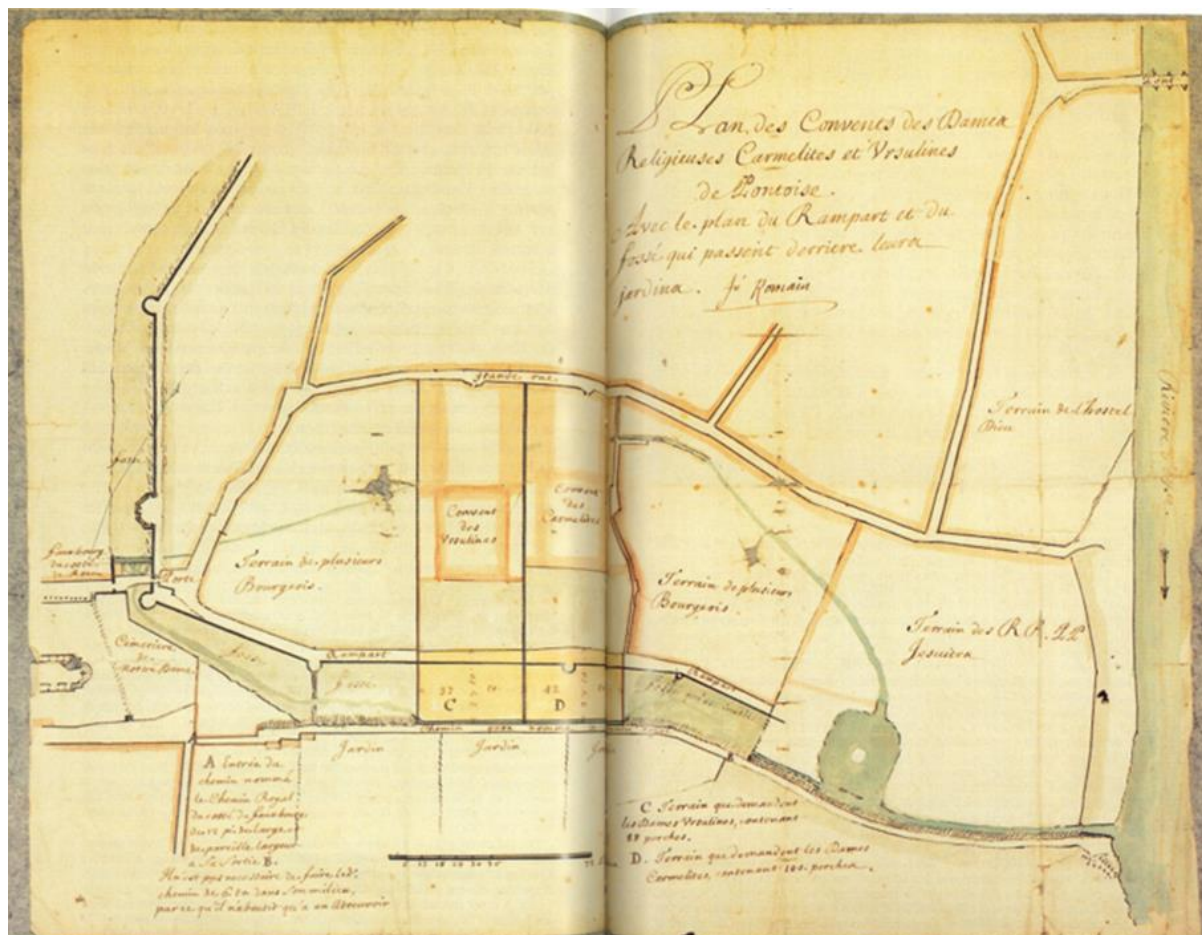 PLan des Convents des Dames
Religieuses Carmelites et Vrsulines
de Pontoise.
Avec le plan du Rampart et du
fossé qui passent derriere leurs
jardins. fr Romain
Pont
Grande rue
Riviere
Terrain de l'hostel
Dieu
fossé
Convent
des
Vrsulines
Convent
des
Carmelites
fauxbourg
Porte
Terrain de plusieurs
Bourgeois.
Terrain de plusieurs
Bourgeois.
Terrain des R.R. PP
Jesuites
Cimetiere
de
Notre Dame
fossé
Rampart
fossé
Rampart
C
D
Chemin
Jardin
Jardin
A Entrée du
chemin nommé
le Chemin Royal
du costé du fauxbourg
de pareille largeur
a sa sortie B.
Il n'est pas necessaire de faire led.
chemin de 6 to dans son milieu,
parce qu'il n'aboutit qu'a un Abreuvoir
C Terrain que demandent
les Dames Vrsulines, contenant
88 perches.
D. Terrain que demandent les Dames
Carmelites, contenant 100. perches.